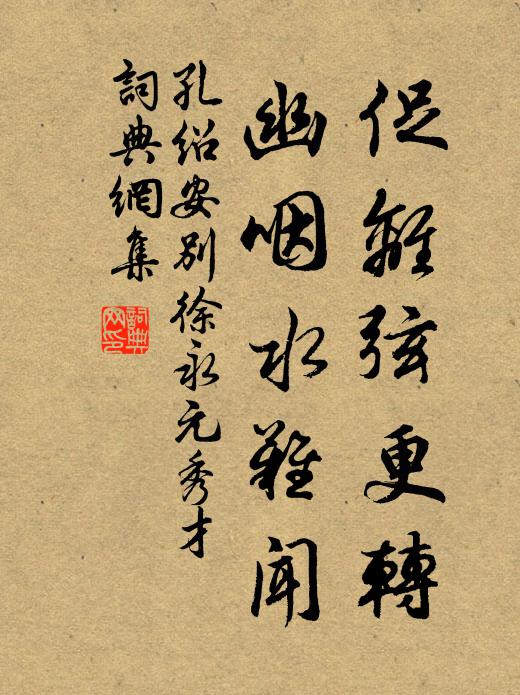 促離弦更轉
幽咽水難聞
孔紹安別徐永元秀才
詞典網集
詞典网印